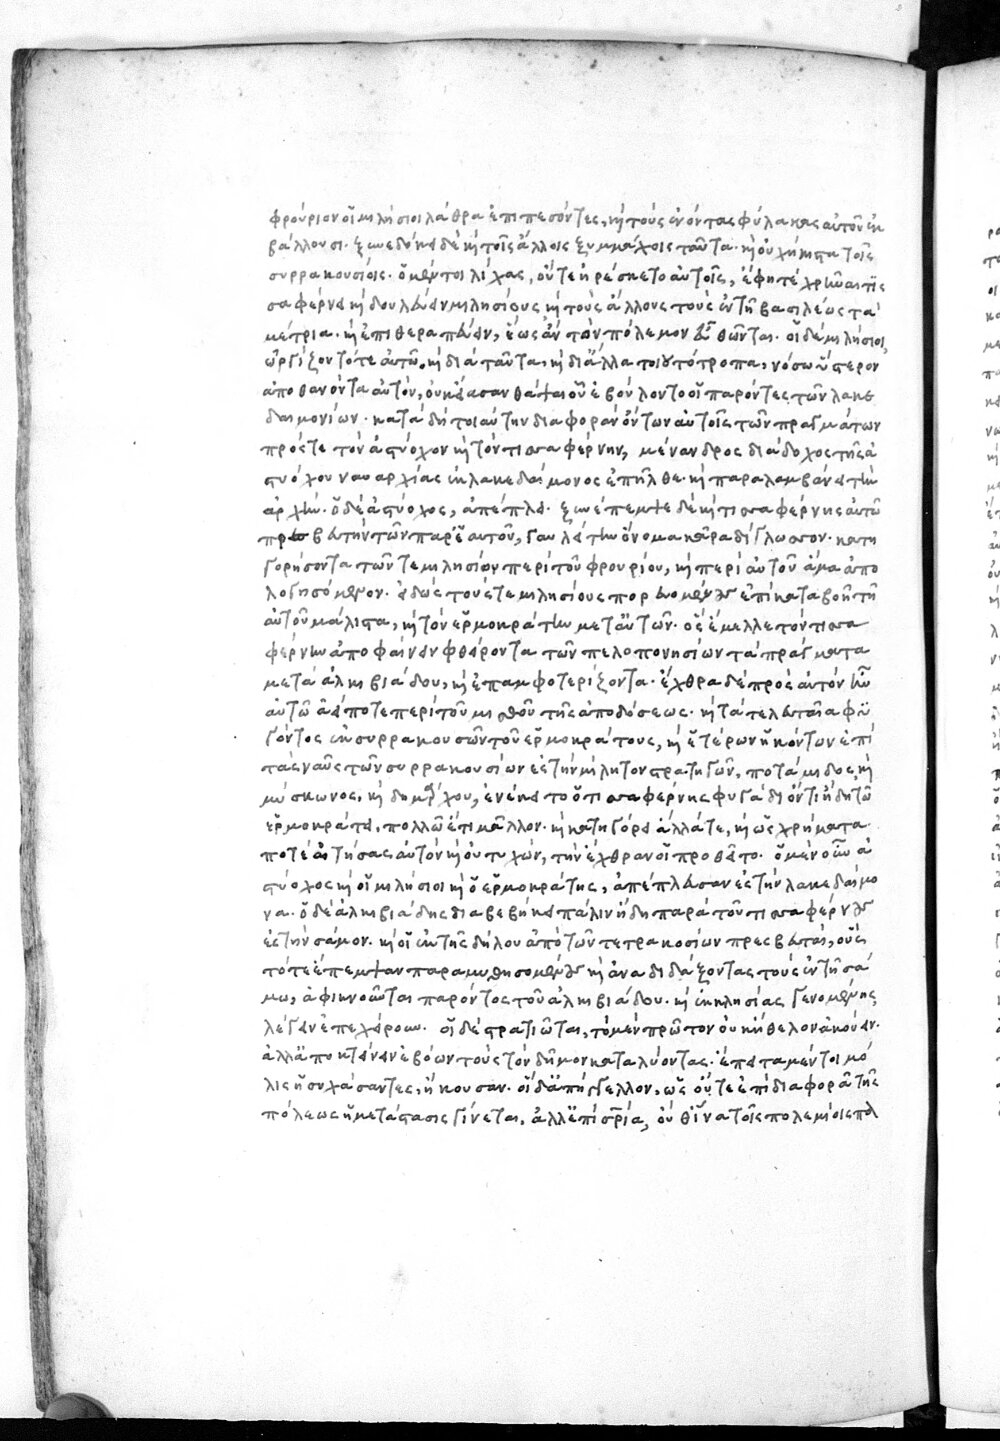 φρούριον οἱ μιλήσιοι λάθρα ἐπιπεσόντες, καὶ τοὺς ἐνόντας φύλακας αὐτοῦ ἐκ
βάλλουσι. ξυνεδόκει δὲ καὶ τοῖς ἄλλοις ξυμμάχοις ταῦτα. καὶ οὐχ ἥκιστα τοῖς
συρρακουσίοις. ὁ μέντοι λίχας, οὔτε ἠρέσκετο αὐτοῖς, ἔφη τὲ χρῆναι τισ
σαφέρνει καὶ δουλεύειν μιλησίους καὶ τοὺς ἄλλους τοὺς ἐν τῇ βασιλέως τὰ
μέτρια. καὶ ἐπιθεραπεύειν, ἕως ἂν τὸν πόλεμον εὖ θῶνται. οἱ δὲ μιλήσιοι,
ὠργίζοντό τε αὐτῷ, καὶ διὰ ταῦτα, καὶ δι' ἄλλα τοιουτότροπα, νόσω ὕστερον
ἀποθανόντα αὐτὸν, οὐκ εἴασαν θάψαι οὗ ἐβούλοντο οἱ παρόντες τῶν λακε
δαιμονίων. κατὰ δὴ τοιαύτην διαφορὰν ὄντων αὐτοῖς τῶν πραγμάτων
πρός τε τὸν ἀστύοχον καὶ τὸν τισσαφέρνην, μίνανδρος διάδοχος τῆς ἀ
στυόχου ναυαρχίας ἐκ λακεδαίμονος ἐπῆλθε. καὶ παραλαμβάνει τὴν
ἀρχήν. ὁ δὲ ἀστύοχος, ἀπέπλει. ξυνέπεμψε δὲ καὶ τισσαφέρνης αὐτῷ
πρεσβευτὴν τῶν παρ' ἑαυτοῦ, γαυλείτην ὄνομα κᾶρα δίγλωσσον. κατη
γορήσοντα τῶν τε μιλησίων περὶ τοῦ φρουρίου, καὶ περὶ αὐτοῦ ἅμα ἀπο
λογησόμενον. εἰδὼς τούς τε μιλησίους πορευομένους ἐπὶ καταβοῇ τῇ
αὐτοῦ μάλιστα, καὶ τὸν ἑρμοκράτην μετ' αὐτῶν. ὃς ἔμελλε τὸν τισσα
φέρνην ἀποφαίνειν φθείροντα τῶν πελοπονησίων τὰ πράγματα
μετὰ ἀλκιβιάδου, καὶ ἐπαμφοτερίζοντα. ἔχθρα δὲ πρὸς αὐτὸν ἦν
αὐτῷ ἀεί ποτε περὶ τοῦ μισθοῦ τῆς ἀποδόσεως. καὶ τὰ τελευταῖα φυ
γόντος ἐκ συρρακουσῶν τοῦ ἑρμοκράτους, καὶ ἑτέρων ἡκόντων ἐπὶ
τὰς ναῦς τῶν συρρακουσίων ἐς τὴν μίλητον στρατηγῶν, ποτάμιδος καὶ
μύσκωνος, καὶ δημάρχου, ἐνέκειτο ὁ τισσαφέρνης φυγάδι ὄντι ἤδη τῷ
ἑρμοκράτει, πολλῷ ἔτι μᾶλλον. καὶ κατηγόρει ἄλλά τε, καὶ ὡς χρήματα
ποτὲ αἰτήσας αὐτὸν καὶ οὐ τυχὼν, τὴν ἔχθραν οἱ προθεῖτο. ὁ μὲν οὖν ἀ
στύοχος καὶ οἱ μιλήσιοι καὶ ὁ ἑρμοκράτης, ἀπέπλευσαν ἐς τὴν λακεδαίμο
να. ὁ δὲ ἀλκιβιάδης διαβεβήκει πάλιν ἤδη παρὰ τοῦ τισσαφέρνους
ἐς τὴν σάμον. καὶ οἱ ἐκ τῆς δήλου ἀπὸ τῶν τετρακοσίων πρεσβευταὶ, οὓς
τότε ἔπεμψαν παραμυθησομένους καὶ ἀναδιδάξοντας τοὺς ἐν τῇ σά
μω, ἀφικνοῦνται παρόντος τοῦ ἀλκιβιάδου. καὶ ἐκκλησίας γενομένης
λέγειν ἐπεχείρουν. οἱ δὲ στρατιῶται, τὸ μὲν πρῶτον οὐκ ἤθελον ἀκούειν.
ἀλλ' ἀποκτείνειν ἐβόων τοὺς τὸν δῆμον καταλύοντας. ἔπειτα μέντοι μό
λις ἡσυχάσαντες, ἤκουσαν. οἱ δ' ἀπήγγελλον, ὡς οὔτε ἐπὶ διαφορᾷ τῆς
πόλεως ἡ μετάστασις γίνεται, ἀλλ' ἐπὶ σωτηρία, οὐθ' ἵνα τοῖς πολεμίοις πα